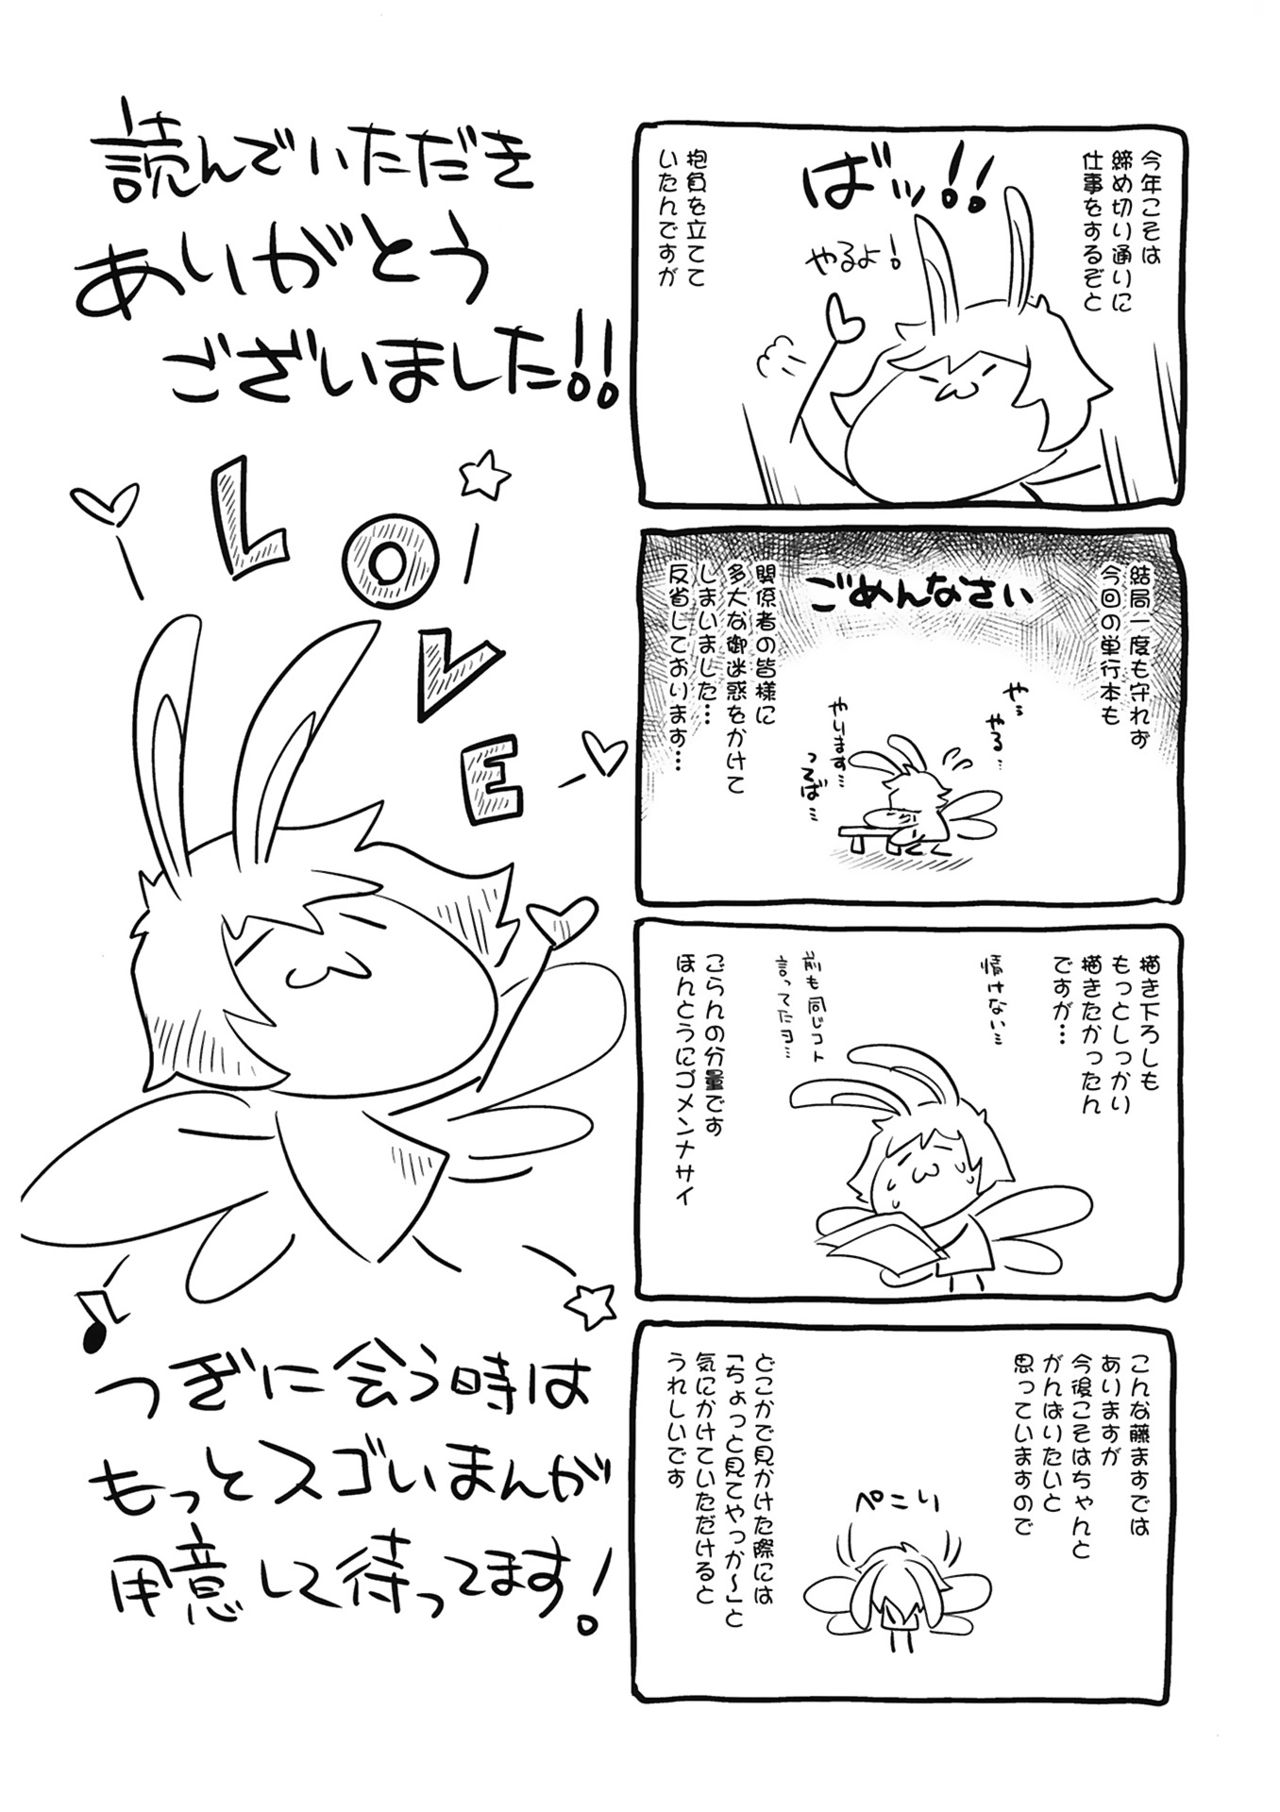 今年こそは
締め切り通りに
仕事をするぞと
ばッ!!
やるよ!
抱負を立てて
いたんですが
結局一度も守れず
今回の単行本も
ごめんなさい
関係者の皆様に
多大な御迷惑をかけて
しまいました…
反省しております…
やっ
やる…
やります…
描き下ろしも
もっとしっかり
描きたかったん
ですが…
情けない…
前も同じコト
言ってたヨ…
ごらんの分量です
ほんとうにゴメンナサイ
こんな藤ますでは
ありますが
今後こそはちゃんと
がんばりたいと
思っていますので
ぺこり
どこかで見かけた際には
「ちょっと見てやっか～」と
気にかけていただけると
うれしいです
読んでいただき
ありがとう
ございました!!
LOVE
つぎに会う時は
もっとスゴいまんが
用意して待ってます!